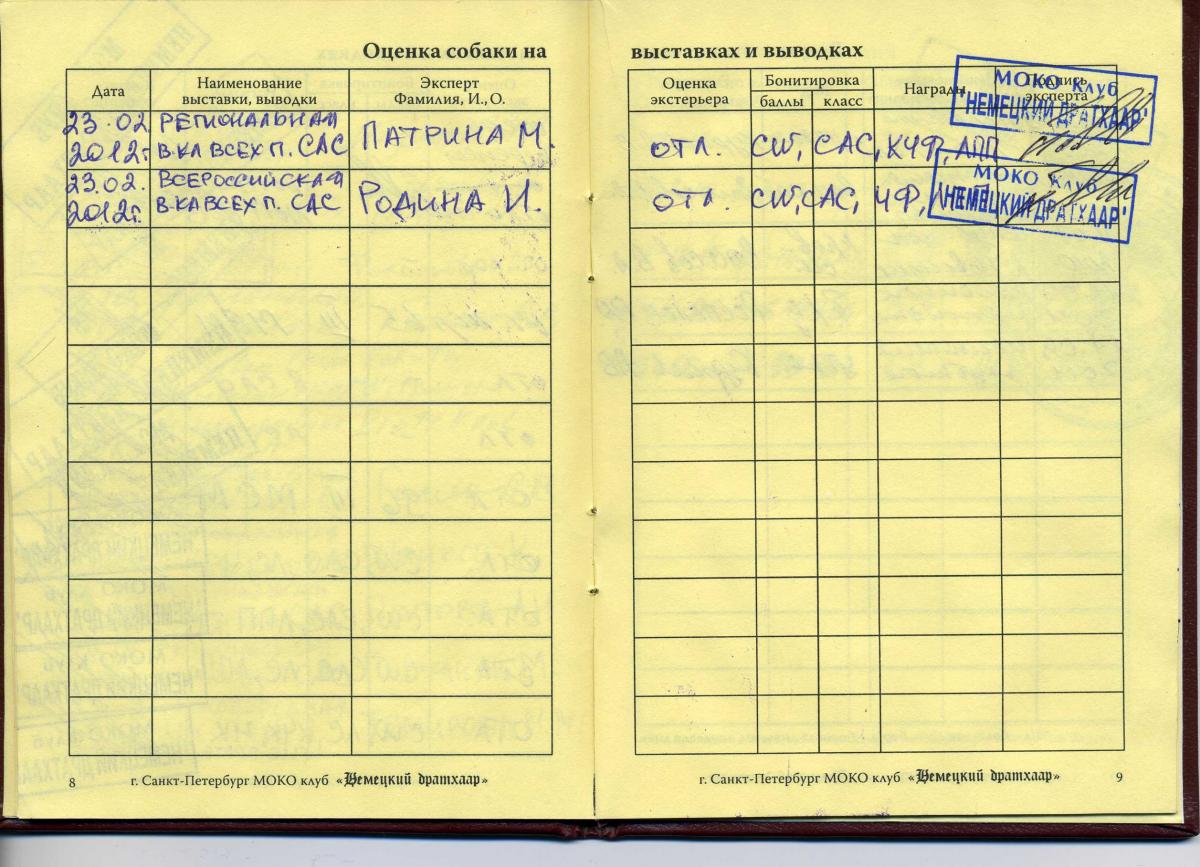 Оценка собаки на
Дата
Наименование
выставки, выводки
Эксперт
Фамилия, И., О.
23.02.
2012г
РЕГИОНАЛЬНАЯ
В-КА ВСЕХ П. САС
ПАТРИНА М.
23.02.
2012г.
ВСЕРОССИЙСКАЯ
В-КА ВСЕХ П. САС
РОДИНА И.
8
г. Санкт-Петербург МОКО клуб «Немецкий дратхаар»
выставках и выводках
Оценка
экстерьера
Бонитировка
баллы
класс
Награды
Подпись
эксперта
МОКО Клуб
"НЕМЕЦКИЙ ДРАТХААР"
ОТЛ. CW, САС, КЧФ, ЛПП
МОКО Клуб
"НЕМЕЦКИЙ ДРАТХААР"
ОТЛ. CW, САС, ЧФ,
г. Санкт-Петербург МОКО клуб «Немецкий дратхаар»
9